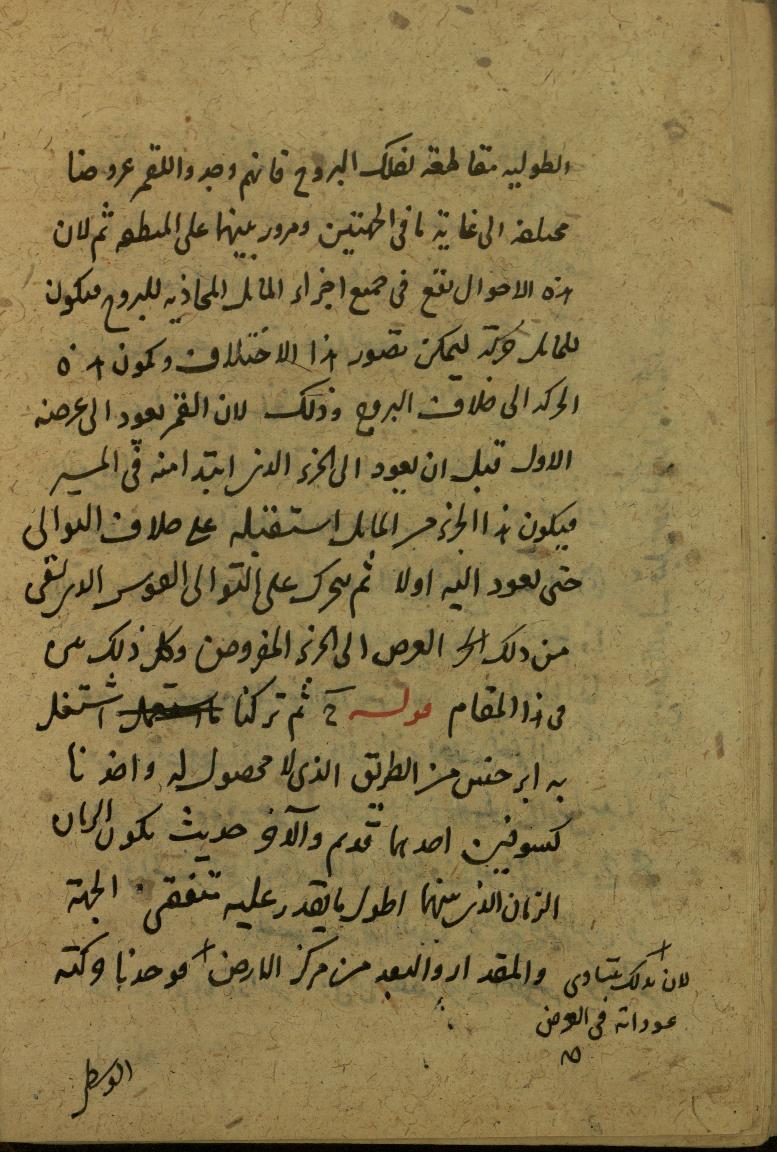 الطولية متقاطعة لفلك البروج فانهم وجدوا للقمر عروضا
مختلفة الى غاية ما فى الجهتين ومرور بينهما على المنطقه ثم لان
هذه الاحوال تقع فى جميع اجزاء المايل المحاذيه للبروج فيكون
للمايل حركة ليمكن تصور هذا الاختلاف وتكون هذه
الحركه الى خلاف البروج وذلك لان القمر يعود الى عرضه
الاول قبل ان يعود الى الجزء الذى ابتدا منه فى المسير
فيكون هذا الجزء من المايل استقبله على خلاف التوالى
حتى يعود اليه اولا ثم يتحرك على التوالى القوس الذى بقى
من ذلك العرض الى الجزء المفروض وكل ذلك
فى هذا المقام قوله ثم تركنا ما استعمل اشتغل
به ابرخس من الطريق الذى لا محصول له واخذنا
كسوفين احدهما قديم والآخر حديث يكون
الزمان الذى بينهما اطول ما يقدر عليه متفقى الجهة
والمقدار والبعد من مركز الارض فوجدنا حركته
لان بذلك يتساوى
عوداته فى العرض
الوسطى